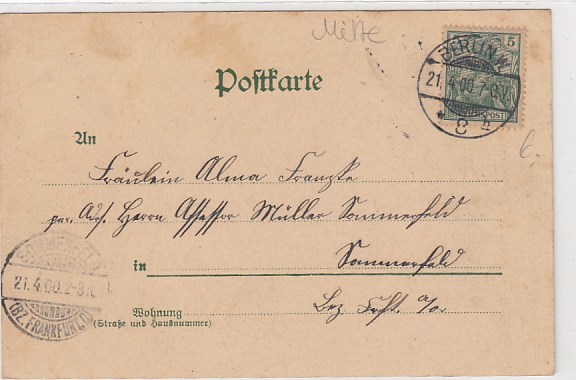 Mitte
5
BERLIN.W.
21.4.00.7-8V.
* 8 h
Postkarte
6.
An
Fräulein Alma Franzke
per. Adr. Herrn Assessor Müller Sommerfeld
SOMMERFELD
21.4.00.2-3N.
(BZ. FRANKFURT,O)
in Sommerfeld
Bez Frkft. a/O.
Wohnung
(Straße und Hausnummer)